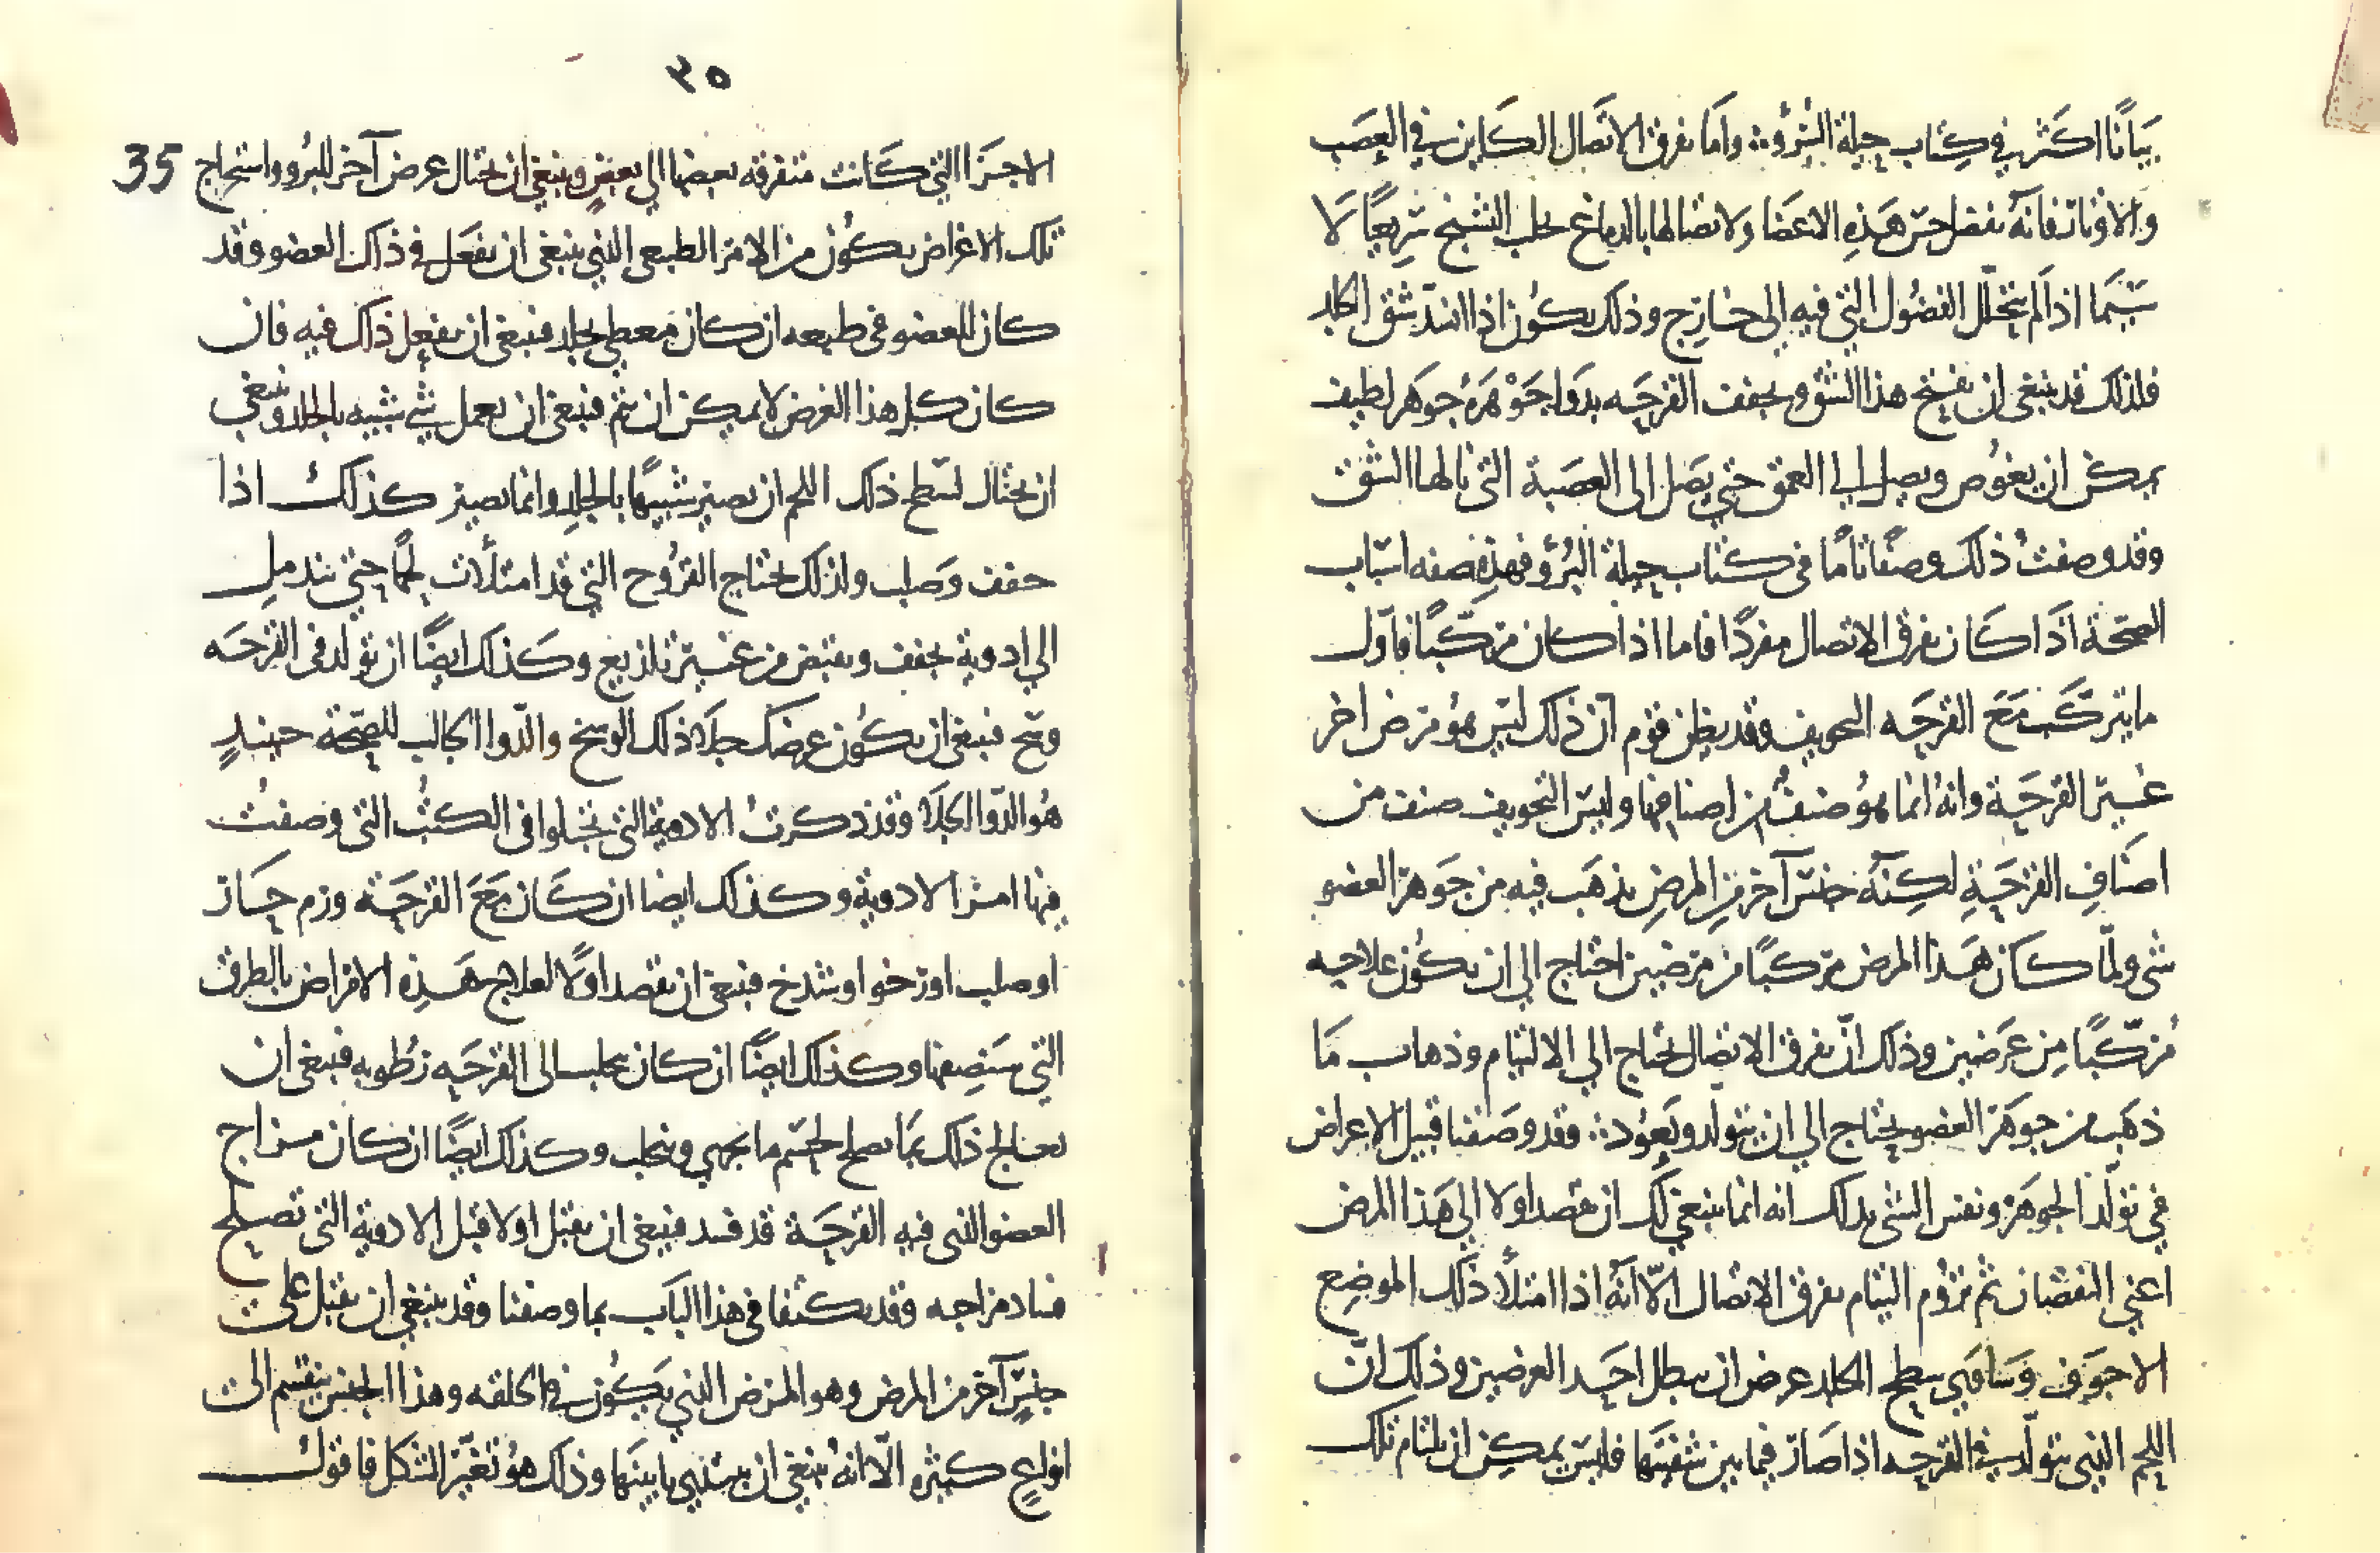 بَيانًا اكثر في كتاب حيلة البُرؤ وامّا تفرق الاتصال الكاين في العصَب
والاوتار فانهُ بفضل حسّ هَذِهِ الاعضَا ولاتصالها بالدماغ يجلب التشنج سَرِيعًا لَا
سِيَّمَا اذا لم تتحلّل الفضُول التي فيه الي خارج وذلك يكُون اذا انسدّ شق الجلد
فلذلك قد ينبغي ان يفتح هذا الشق ويجفف القرحَه بدَوا جَوْهَرَهُ جَوهَر لطيف
يمكن ان يغوُص ويصل الي العمق حتي يصَل الى العصَبة التي نالها الشق
وقد وصفتُ ذلك وصفًا تامًا في كتاب حيلة البُرُؤ فهذِه صفه اسبَاب
الصحّة اذَا كَان تفرق الاتصال مفردًا فاما اذا كان مركّبًا فاول
ما يتركّب مَعَ القرحَه التجويف وقد يظن قوم ان ذلك ليس هُو مرض اخر
غير القرحَة وانهُ انما هوُ صنفٌ من اصنافها وليس التجويف صنف من
اصنافِ القرحَةِ لكِنّهُ جنس آخر مِن المرضِ يذهَب فيه من جَوهر العضو
شي ولمّا كان هَذا المرض مركبًا من مرضين احتاج الي ان يكوُن علاجه
مُركّبًا مِن غَرضين وذلك انّ تفرق الاتصال يحتاج الي الالتيام وذهاب مَا
ذهَب من جوهَر العضو يحتاج الي ان يتولد ويَعوُد وقد وصَفنا قبيل الاغراض
في تولّد الجوهَر ونفس الشي يدلك انه انما ينبغي لَك ان تقصد اولا الي هَذا المرض
اعني النقصَان ثم تروُم التيام تفرق الاتصال الّا انّهُ اذا امتلأ ذلك الموضِع
الاجوَف وسَاوَي سطح الجلد عرض ان يبطل احَد الغرضين وذلك انّ
اللحم الذي يتولّد في القرحه اذا صَار فيما بين شفتَيها فليسَ يمكِن ان يلتام تلك
٣٥
35
الاجزا التي كَانت متفرقه بعضها الي بعضٍ وينبغي ان يحتال عرض آخر للبُرو واستخراج
تلك الاغراض يكوُن من الامر الطبيعي الذي ينبغي ان يفعَل في ذلك العضو وقد
كان العضو في طبيعه ان كان مغطي بجلد فينبغي ان يفعل ذلك فيه فان
كان كمل هذا الغرض لا يمكن ان يتم فينبغي ان يعمل شي شبيه بالجلد وينبغي
ان يحتال لسَطح ذلك اللحم ان يصير شبيهًا بالجلدِ وانما يصير كذلك اذا
جفف وَصلب ولذلك يحتاج القُرُوح التي قد امتلأت لحمًا حتي يندمِل
الي ادوية تجفف وتقبض من غير تلذيع وكَذلك ايضًا ان تولد في القرحَه
وسخ فينبغي ان يكُون غرضك جلَا ذلك الوسَخ والدّوا الجالب للصحّة حينيذٍ
هُو الدّوا الجَلّا وقد ذكرتُ الادوية التي تجلوا في الكتُب التي وصفتُ
فيها امر الادوية وكذلك ايضا ان كَان مَعَ القرحَة ورم حَار
او صلب او رخو او شدخ فينبغي ان تقصد اولًا لعلاج هَذِه الامراض بالطرق
التي سَنصِفها وكذلك ايضًا ان كان يجلب الى القرحَه رطُوبه فينبغي ان
يعَالج ذلك بمَا يصلح لحسَم ما يجهي ويتجلب وكذلك ايضًا ان كان مزاج
العضو الذي فيه القرحَة قد فسد فينبغي ان يقبل اولا قبل الادوية التي تصلح
فساد مزاجه وقد يكتفا في هذا البَاب بما وصفنا وقد ينبغي ان يقبل علي
جنسٍ آخر من المرض وهو المرض الذي يَكوُن في الخلقه وهذا الجنس ينقسم الى
انواعٍ كثيره الّا انهُ ينبغي ان يبتدي بابينهَا وذلك هوُ تغيّر الشكل فاقول